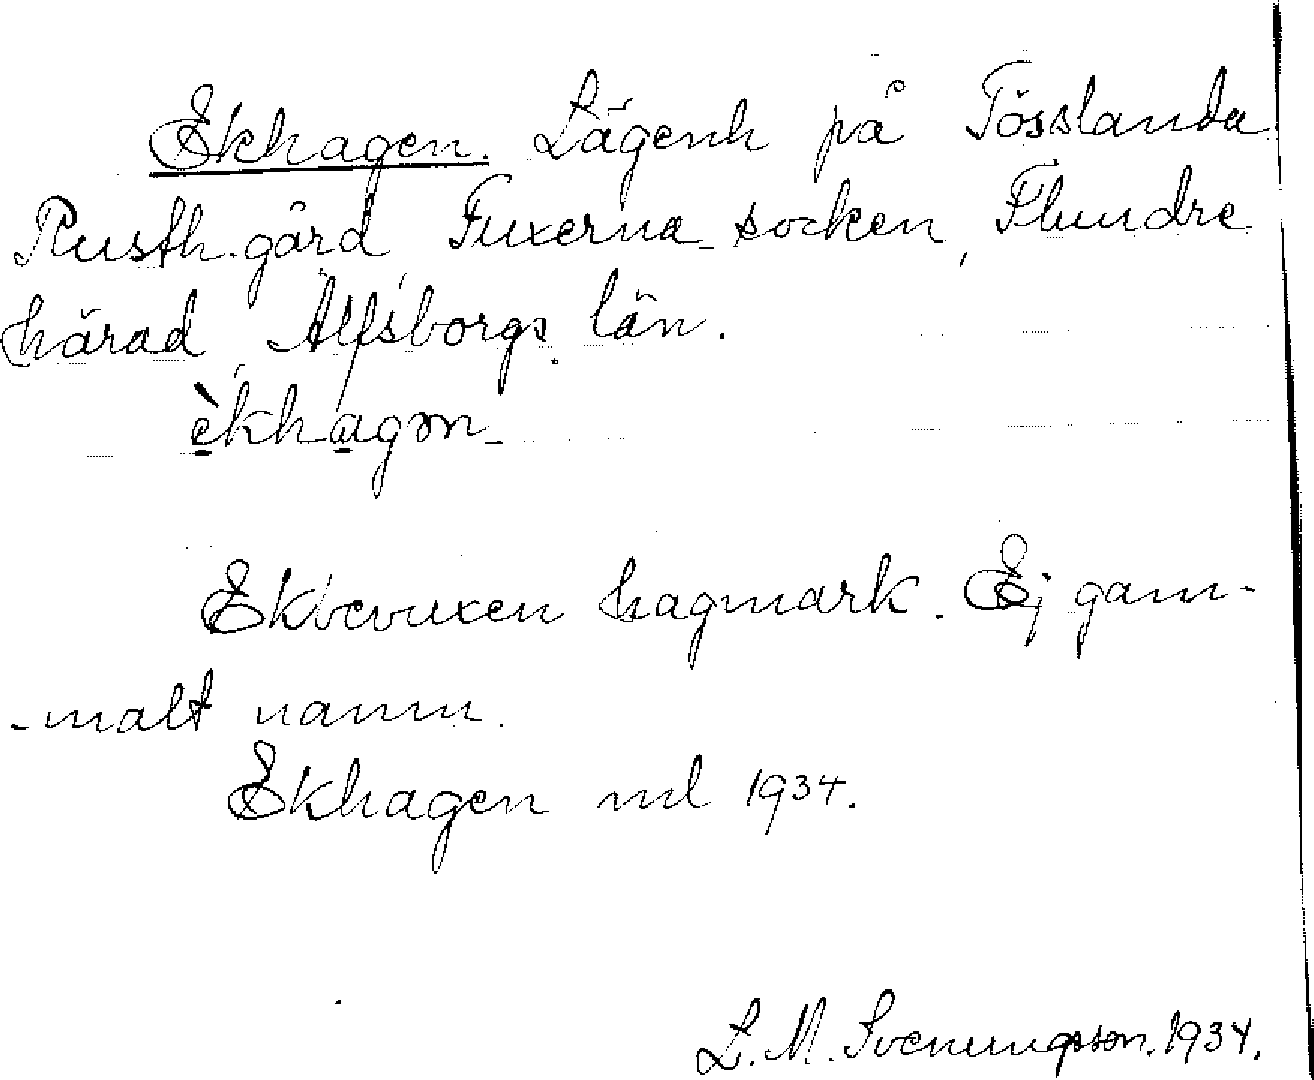 Ekhagen. Lägenh på Tösslanda
Rusth.gård Fuxerna socken, Flundre
härad, Älfsborgs län.
èkhagən
Ekbevuxen hagmark. Ej gam-
-malt namn.
Ekhagen ml 1934.
L. M. Svenungsson. 1934.